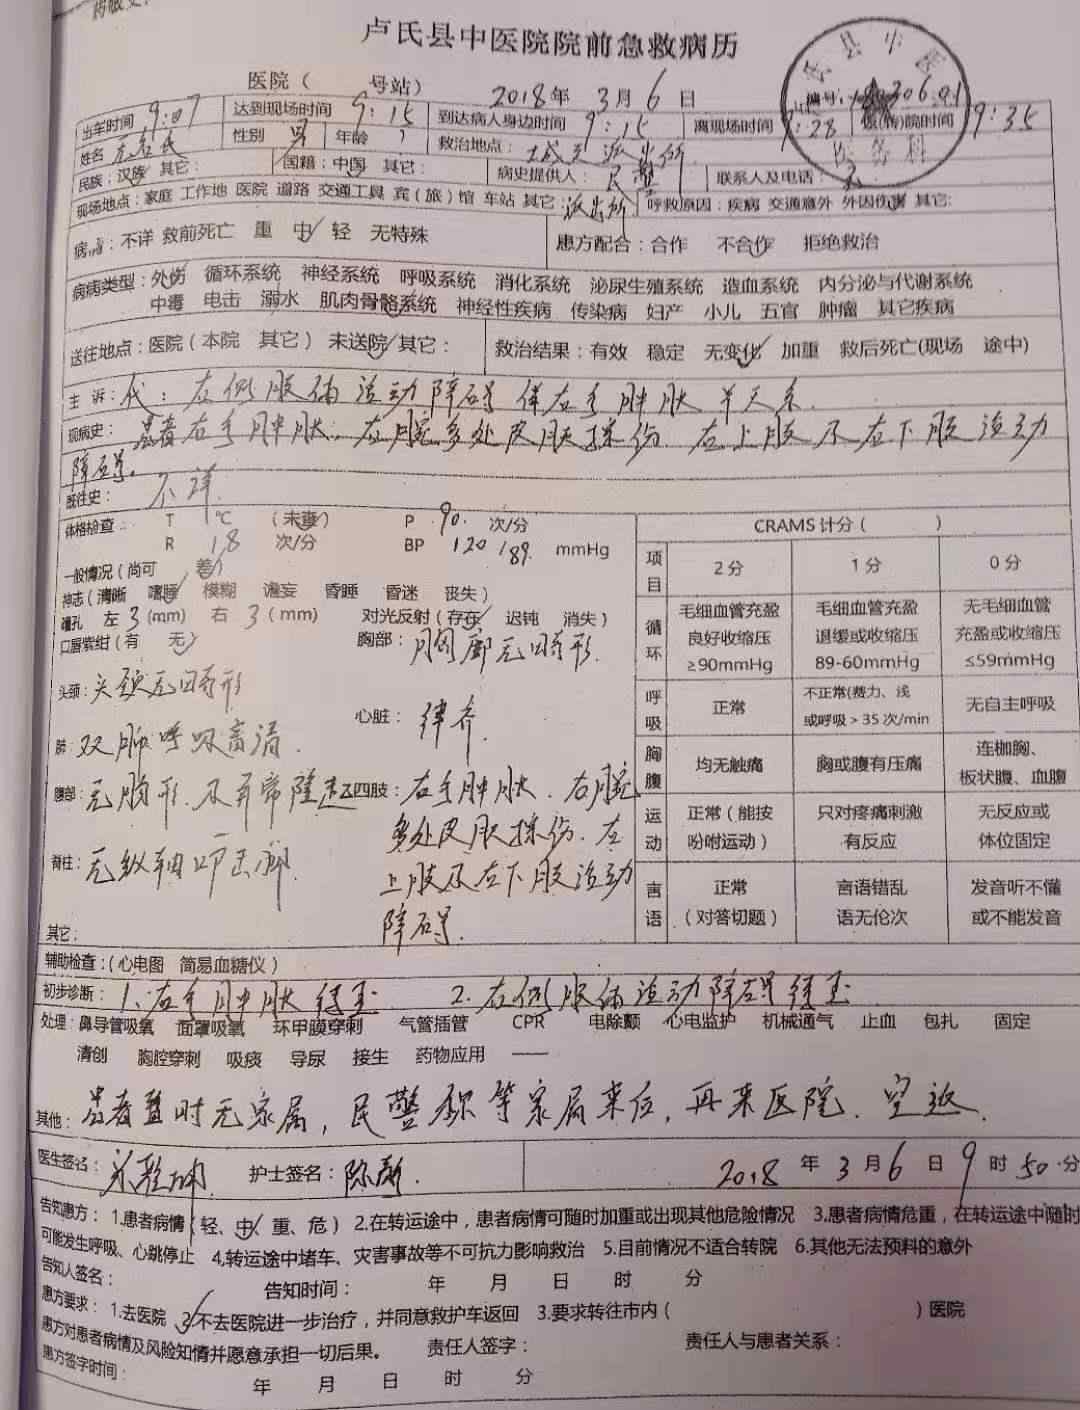 卢氏县中医院院前急救病历
医院（ 号站） 2018年 3月 6日
出车时间 9:07 达到现场时间 9:15 到达病人身边时间 9:15 离现场时间 9:28 时间 9:35
姓名 性别 男 年龄 救治地点： 派出所
民族：汉族 其它： 国籍：中国 其它： 病史提供人：民警 联系人及电话：无
现场地点：家庭 工作地 医院 道路 交通工具 宾（旅）馆 车站 其它：派出所 呼救原因：疾病 交通意外 外因伤害 其它：
病情：不详 救前死亡 重 中 轻 无特殊 患方配合：合作 不合作 拒绝救治
疾病类型：外伤 循环系统 神经系统 呼吸系统 消化系统 泌尿生殖系统 造血系统 内分泌与代谢系统
中毒 电击 溺水 肌肉骨骼系统 神经性疾病 传染病 妇产 小儿 五官 肿瘤 其它疾病
送往地点：医院（本院 其它） 未送院 其它： 救治结果：有效 稳定 无变化 加重 救后死亡(现场 途中)
主 诉：代：左侧肢体活动障碍伴右手肿胀半天余
现病史：患者右手肿胀，右腕多处皮肤擦伤 左上肢及左下肢活动
障碍。
既往史： 不详
体格检查： T ℃ （未查） P 90 次/分
R 18 次/分 BP 120/89 mmHg
一般情况（尚可 差）
神志（清晰 嗜睡 模糊 谵妄 昏睡 昏迷 丧失）
瞳孔 左 3 (mm) 右 3 (mm) 对光反射（存在 迟钝 消失）
口唇紫绀（有 无） 胸部：胸廓无畸形
头颈：头颈无畸形
心脏：律齐
肺：双肺呼吸音清
腹部： 及异常隆起 四肢：右手肿胀、右腕
多处皮肤擦伤、左
上肢及左下肢活动
障碍.
脊柱：无纵轴叩击痛
其它：
CRAMS计分（ ）
项目 2分 1分 0分
循环 毛细血管充盈良好收缩压≥90mmHg 毛细血管充盈退缓或收缩压89-60mmHg 无毛细血管充盈或收缩压≤59mmHg
呼吸 正常 不正常(费力、浅或呼吸＞35次/min 无自主呼吸
胸腹 均无触痛 胸或腹有压痛 连枷胸、板状腹、血腹
运动 正常（能按吩咐运动） 只对疼痛刺激有反应 无反应或体位固定
言语 正常（对答切题） 言语错乱语无伦次 发音听不懂或不能发音
辅助检查：（心电图 简易血糖仪）
初步诊断：1、右手肿胀待查 2.左侧肢体活动障碍待查
处理：鼻导管吸氧 面罩吸氧 环甲膜穿刺 气管插管 CPR 电除颤 心电监护 机械通气 止血 包扎 固定
清创 胸腔穿刺 吸痰 导尿 接生 药物应用 ——
其他：患者暂时无家属，民警称等家属来后，再来医院. 空返.
医生签名： 护士签名： 2018 年 3月 6日 9时 50分
告知患方：1.患者病情（轻、中、重、危）2.在转运途中，患者病情可随时加重或出现其他危险情况 3.患者病情危重，在转运途中随时
可能发生呼吸、心跳停止 4.转运途中堵车、灾害事故等不可抗力影响救治 5.目前情况不适合转院 6.其他无法预料的意外
告知人签名： 告知时间： 年 月 日 时 分
患方要求：1.去医院 2.不去医院进一步治疗，并同意救护车返回 3.要求转往市内（ ）医院
患方对患者病情及风险知情并愿意承担一切后果。 责任人签字： 责任人与患者关系：
患方签字时间： 年 月 日 时 分